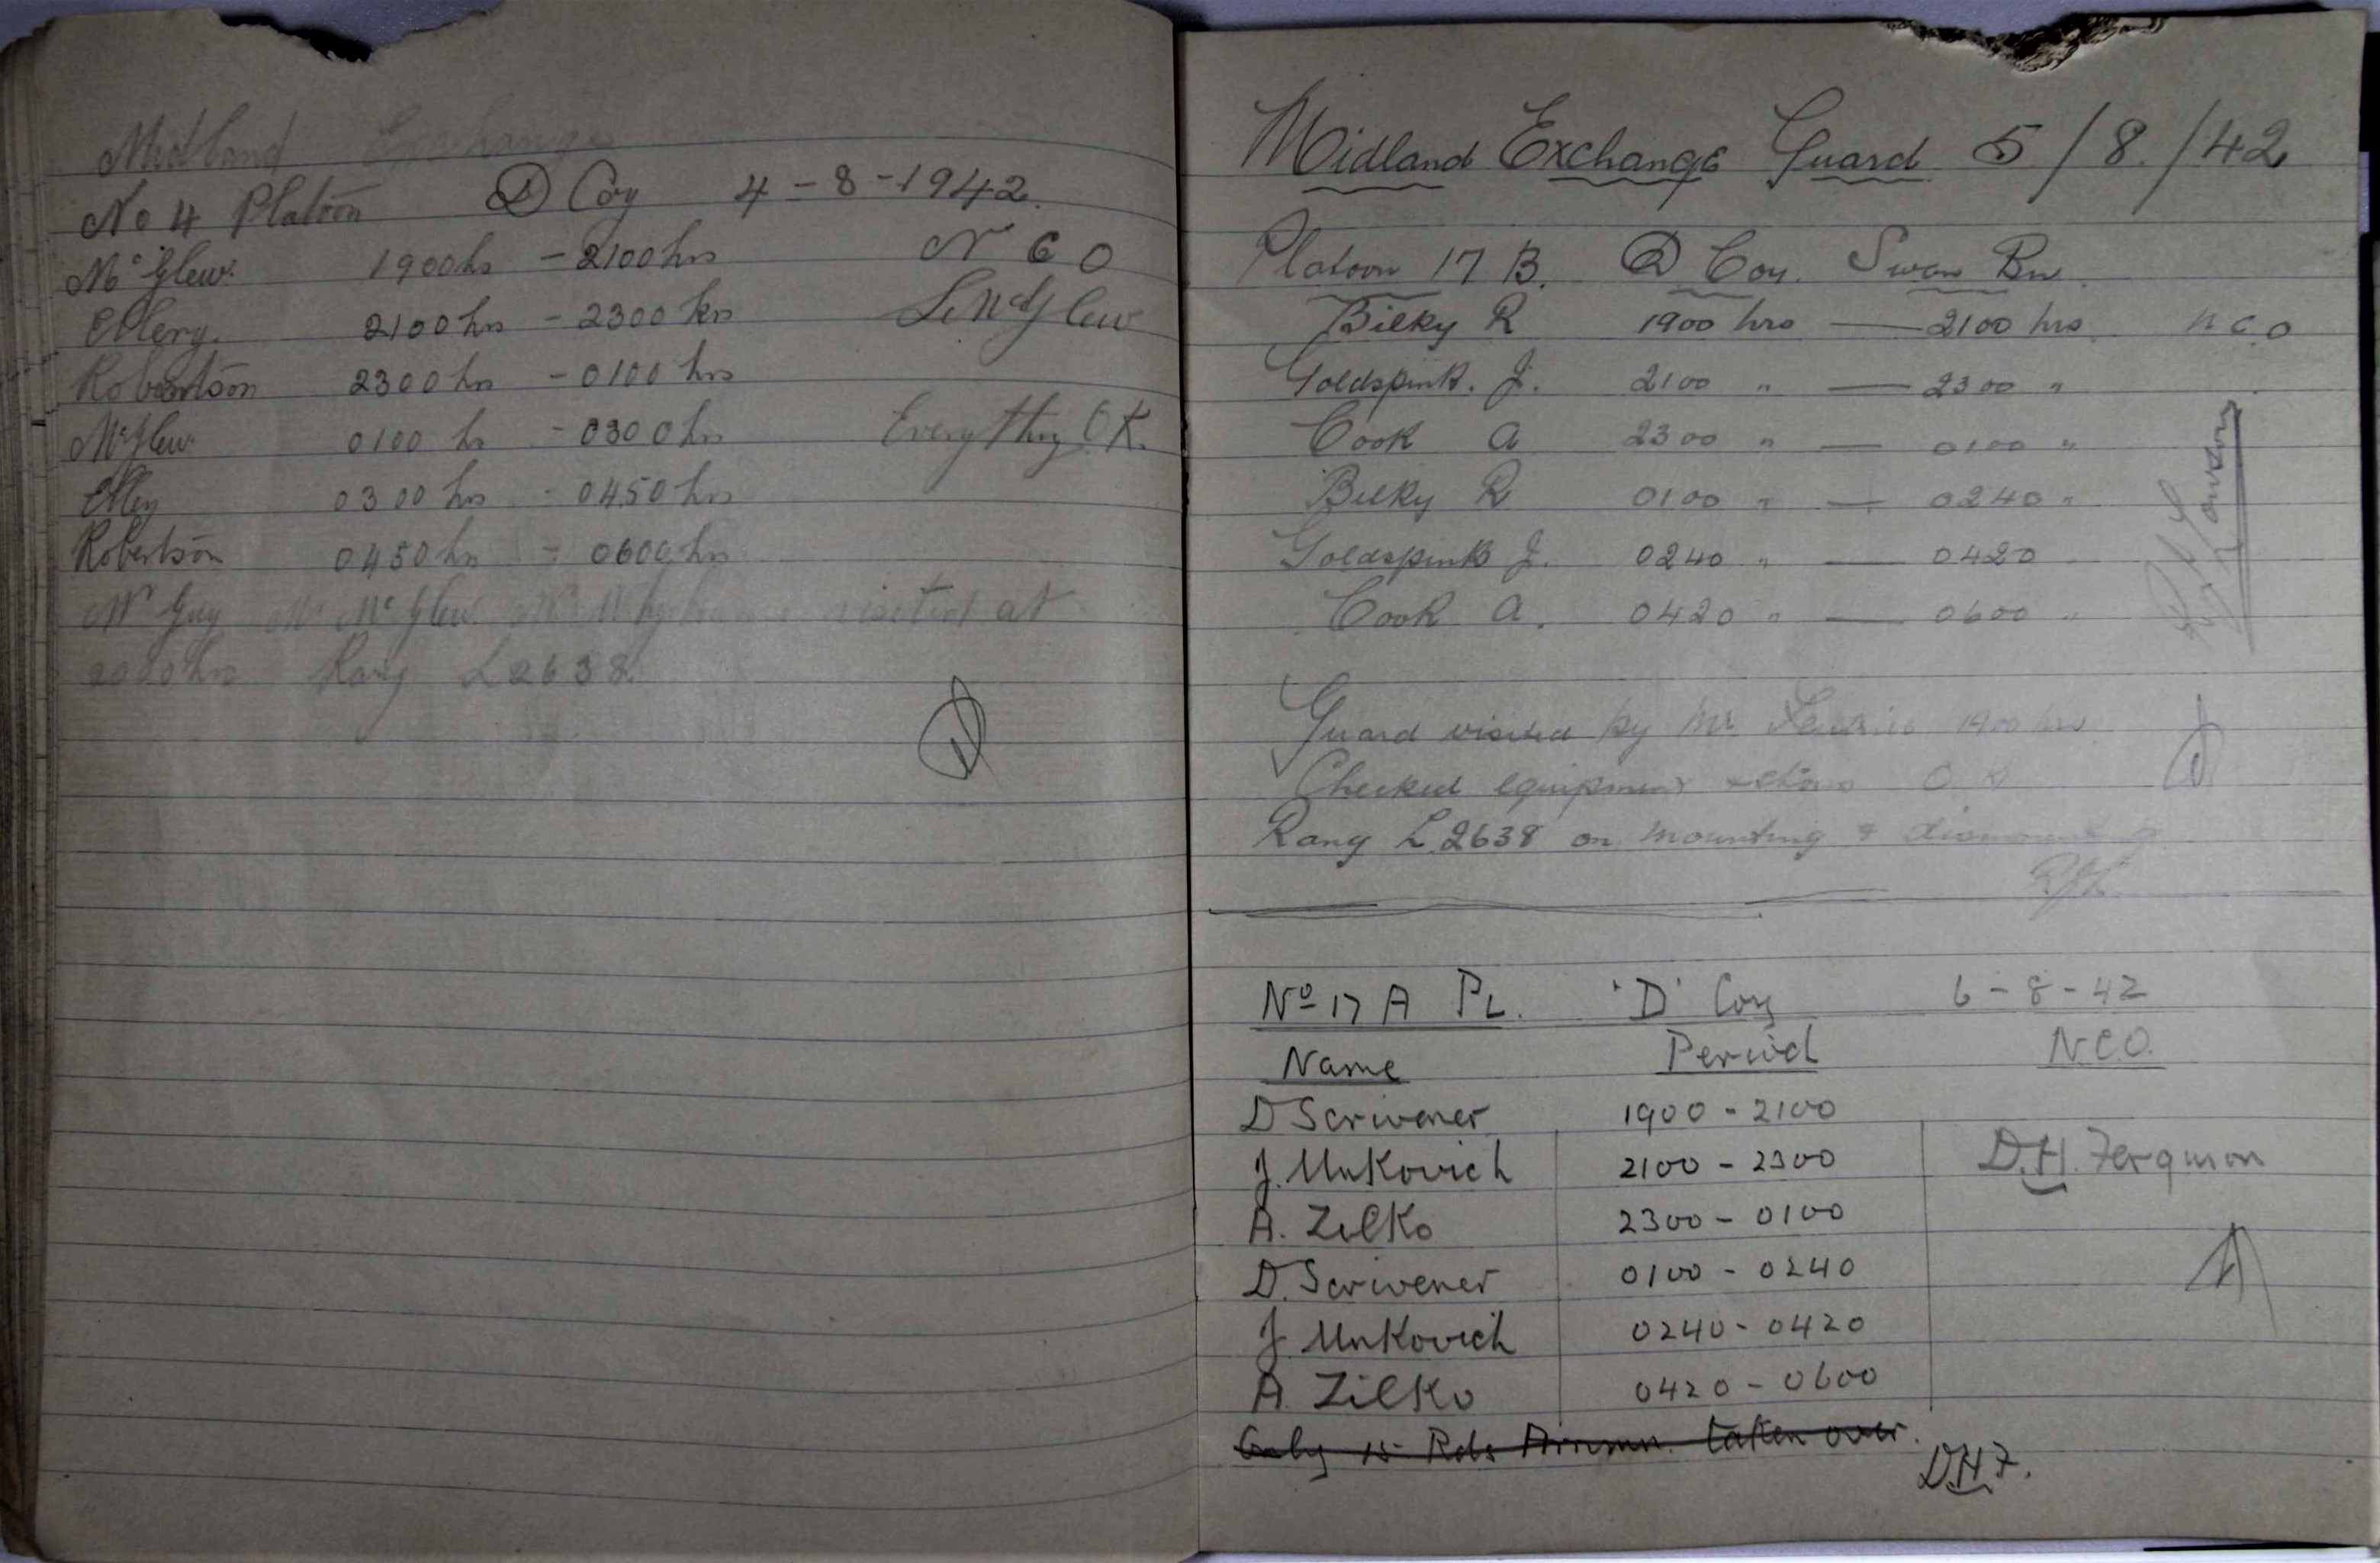 Midland Exchange
No 4 Platoon D Coy 4-8-1942.
McGlew. 1900hs - 2100hrs N C O
Ellery. 2100hrs - 2300hrs L. McGlew
Robertson 2300hrs - 0100hrs
McGlew. 0100hr - 0300hrs Everything O.K.
Ellery 0300hrs - 0450hrs
Robertson 0450hrs - 0600hrs
Mr Guy Mr McGlew visited at
2000hrs Rang L2638.
Midland Exchange Guard 5/8/42
Platoon 17 B. D Coy. Swan Bn.
Bilky R 1900 hrs — 2100 hrs N C O
Goldspink. J. 2100 " — 2300 "
Cook A 2300 " — 0100 "
Bilky R 0100 " — 0240 "
Goldspink J. 0240 " — 0420
Cook A. 0420 " — 0600 "
Guard visited by Mr 1900 hrs
Checked equipment
Rang L2638 on mounting & dismounting
No 17 A PL. 'D' Coy 6-8-42
Name Period N.C.O.
D Scrivener 1900 - 2100
J. Unkovich 2100 - 2300 D.H. Ferguson
A. Zilko 2300 - 0100
D. Scrivener 0100 - 0240
J Unkovich 0240 - 0420
A. Zilko 0420 - 0600
Only 15 Rds Ammn. taken over.
D.H.F.